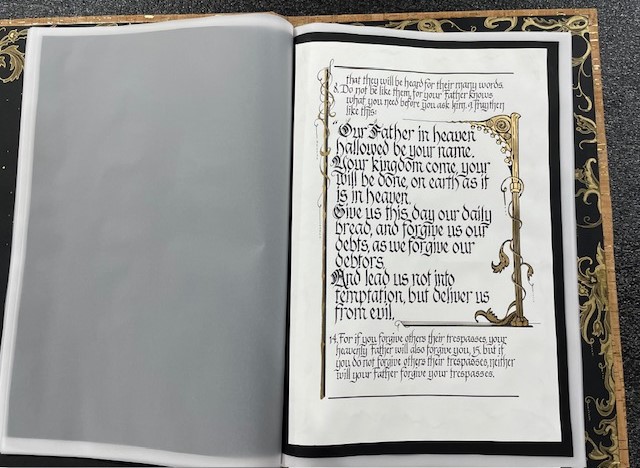 that they will be heard for their many words.
8. Do not be like them, for your Father knows
what you need before you ask him. 9. Pray then
like this:
"Our Father in heaven
hallowed be your name.
Your kingdom come, your
will be done, on earth as it
is in heaven.
Give us this day our daily
bread, and forgive us our
debts, as we forgive our
debtors.
And lead us not into
temptation, but deliver us
from evil.
14. For if you forgive others their trespasses, your
heavenly Father will also forgive you, 15. but if
you do not forgive others their trespasses, neither
will your Father forgive your trespasses.